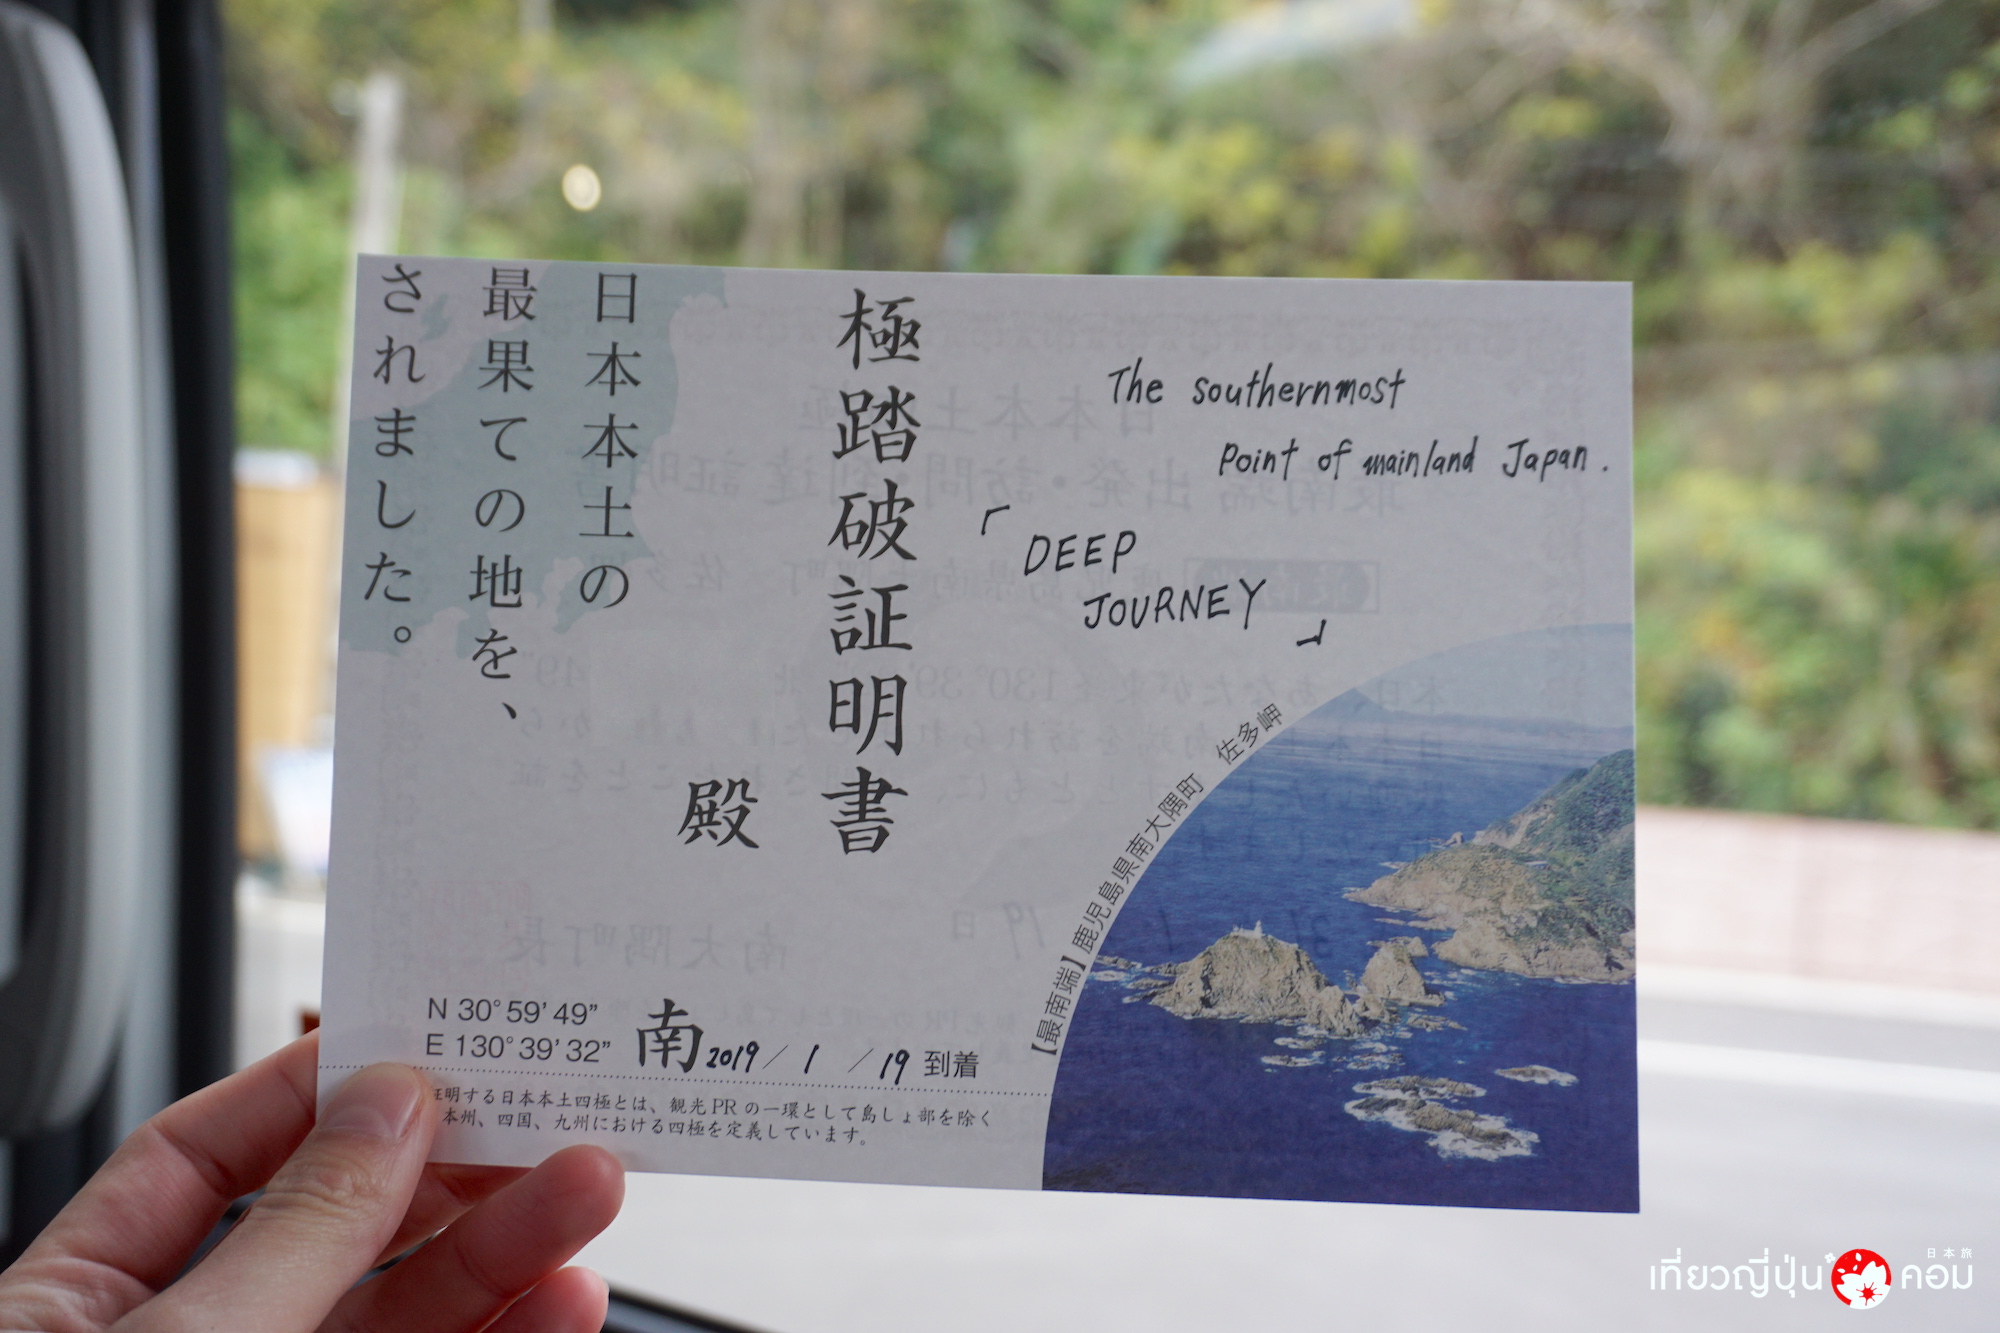 The southernmost
Point of mainland Japan.
「DEEP
JOURNEY」
極踏破証明書
殿
日本本土の
最果ての地を、
されました。
【最南端】鹿児島県南大隅町 佐多岬
N 30°59’49”
E 130°39’32”
南 2019/1/19 到着
証明する日本本土四極とは、観光PRの一環として島しょ部を除く
本州、四国、九州における四極を定義しています。
日本旅
เที่ยวญี่ปุ่น คอม